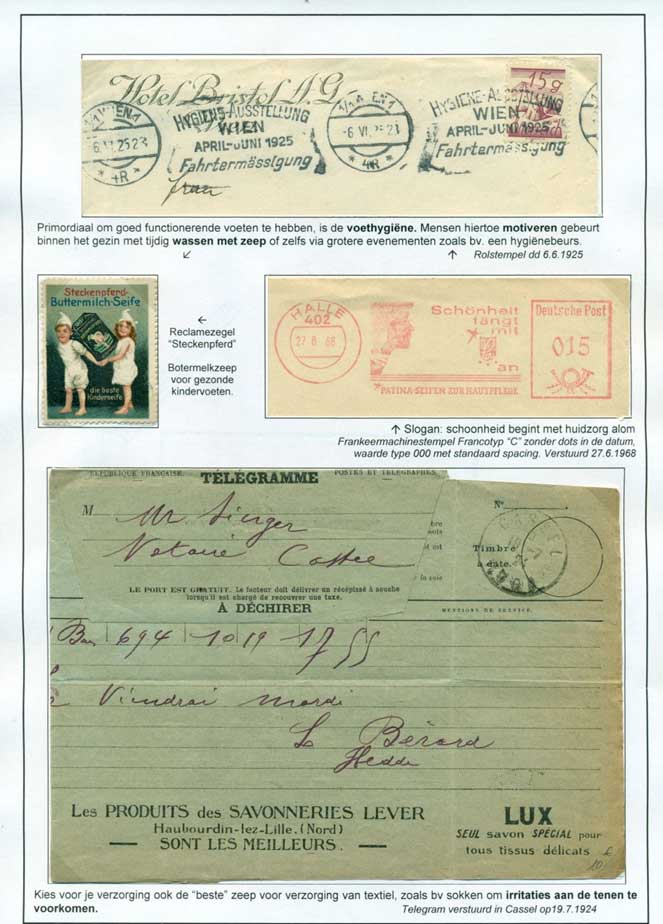 Hotel Bristol A.G.
1/1 WIEN 1
6.VI.25 23
* 4R *
HYGIENE-AUSSTELLUNG
WIEN
APRIL-JUNI 1925
Fahrtermässigung
1/1 WIEN 1
-6.VI.25 23
* 4R *
HYGIENE-AUSSTELLUNG
WIEN
APRIL-JUNI 1925
Fahrtermässigung
15 g
Primordiaal om goed functionerende voeten te hebben, is de voethygiëne. Mensen hiertoe motiveren gebeurt
binnen het gezin met tijdig wassen met zeep of zelfs via grotere evenementen zoals bv. een hygiënebeurs.
↙ ↑ Rolstempel dd 6.6.1925
Steckenpferd-
Buttermilch-Seife
die beste
Kinderseife
←
Reclamezegel
“Steckenpferd”
Botermelkzeep
voor gezonde
kindervoeten.
HALLE
402
27.6.68
Schönheit
fängt
mit
an
*PATINA-SEIFEN ZUR HAUTPFLEGE
Deutsche Post
015
↑ Slogan: schoonheid begint met huidzorg alom
Frankeermachinestempel Francotyp “C” zonder dots in de datum,
waarde type 000 met standaard spacing. Verstuurd 27.6.1968
RÉPUBLIQUE FRANÇAISE. POSTES ET TÉLÉGRAPHES
TÉLÉGRAMME
M
Mr Singer
Notaire Cassel
LE PORT EST GRATUIT. Le facteur doit délivrer un récépissé à souche
lorsqu'il est chargé de recouvrer une taxe.
À DÉCHIRER
N°
Timbre
à date.
CASSEL
MENTIONS DE SERVICE.
694 1019 17 55
Viendrai mardi
Bérard
Les PRODUITS des SAVONNERIES LEVER
Haubourdin-lez-Lille.(Nord)
SONT LES MEILLEURS.
LUX
SEUL savon SPÉCIAL pour
tous tissus délicats
Kies voor je verzorging ook de “beste” zeep voor verzorging van textiel, zoals bv sokken om irritaties aan de tenen te
voorkomen. Telegram verstuurd in Cassel op19.7.1924